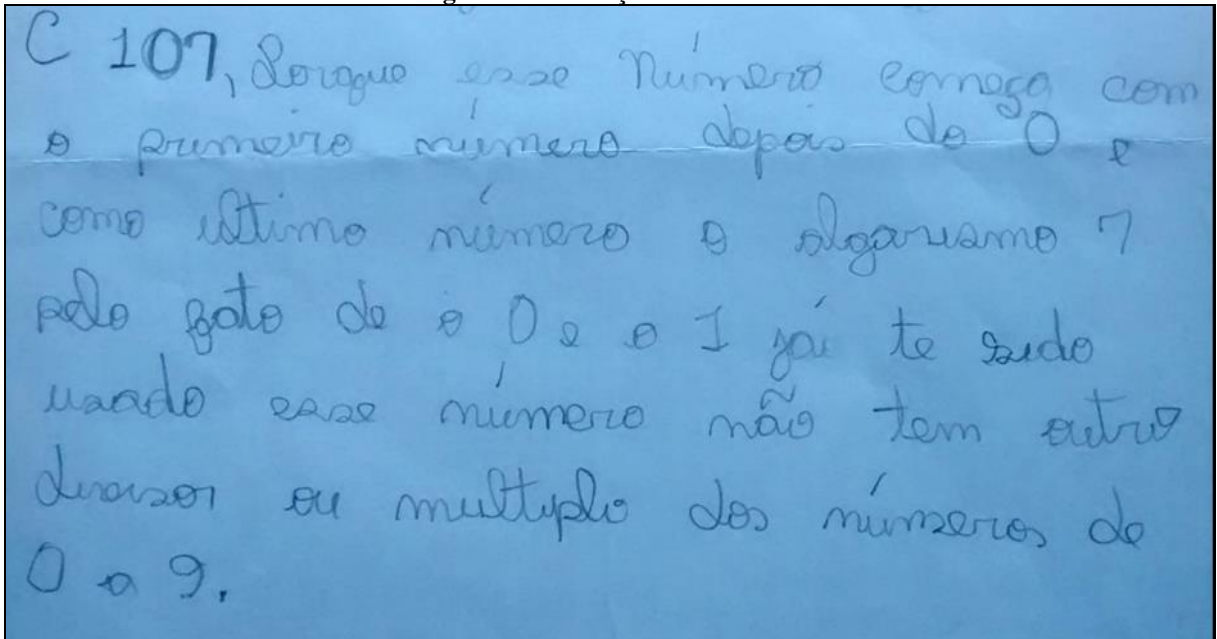 C 107, Porque esse número começa com
o primeiro número depois do 0 e
como último número o algarismo 7
pelo fato de o 0 e o 1 já te sido
usado esse número não tem outro
divisor ou multiplo dos números de
0 a 9.